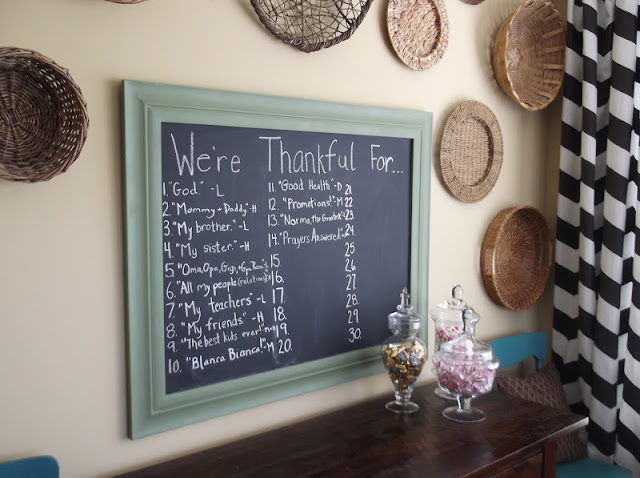 We're Thankful For...
1. "God." -L
2. "Mommy + Daddy"-H
3 "My brother." -L
4 "My sister." -H
5 "Oma, Opa, Gigi, +
6. "All my people (relatives)"
7 "My teachers" -L
8. "My friends." -H
9. "The best kids ever!"-M
10. "Blanca Bianca!"-M
11. "Good Health"-D
12. "Promotions!"-M
13. "Norma, the Greatest"
14. "Prayers Answered"
15.
16.
17.
18.
19.
20.
21
22
23.
24
25
26
27.
28.
29
30.